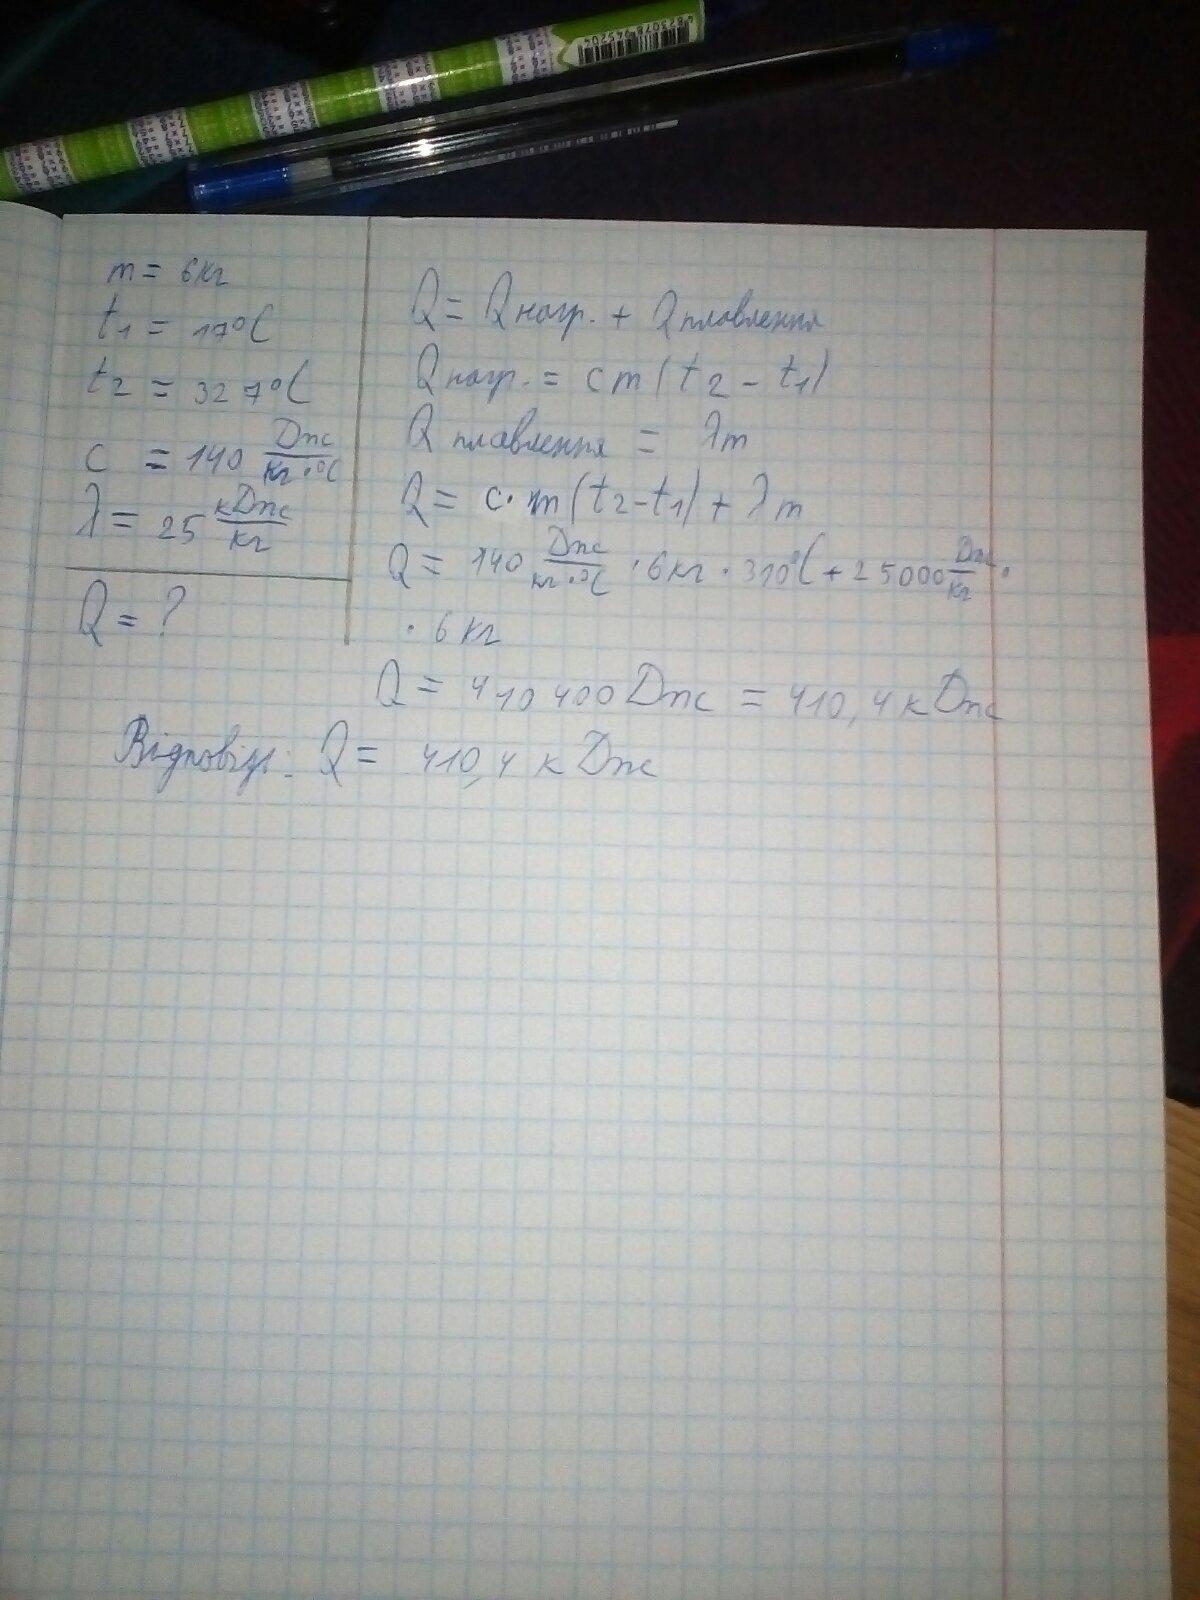 4823078945204
m = 6кг
t1 = 17°C
t2 = 327°C
c = 140 Дж/кг·°C
λ = 25 кДж/кг
Q = ?
Q = Qнагр. + Qплавлення
Qнагр. = cm(t2 - t1)
Qплавлення = λm
Q = c·m(t2-t1) + λm
Q = 140 Дж/кг·°C ·6кг·310°C + 25000 Дж/кг ·
· 6 кг
Q = 410400 Дж = 410,4 кДж
Відповідь: Q = 410,4 кДж